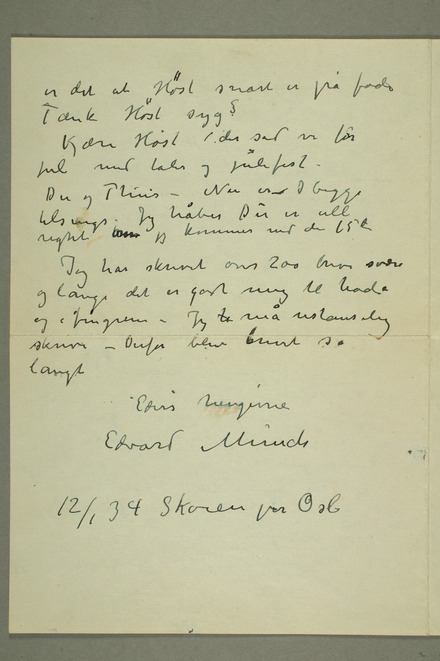 er det at Høst snart er på fode
Tænk Høst syg?
Kjære Høst der sad vi før
jul med taler og julefest –
Du og Thiis – Nu er I begge
tilsengs. Jeg håber Du er all
right når jeg kommer ned den 15de
Jeg har skrevet over 200 breve svære
og lange det er godt nug til hode
og i fingrene – Jeg må ustanselig
skrive – Derfor blev brevet så
langt
Eders hengivne
Edvard Munch
12/1 34 Skøien per Oslo